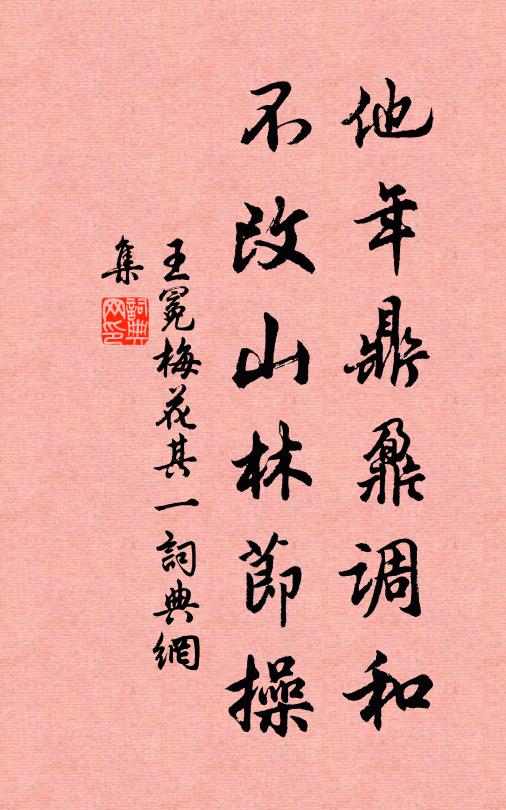 他年鼎鼐调和
不改山林節操
王冕梅花其一詞典網
集
詞典网印